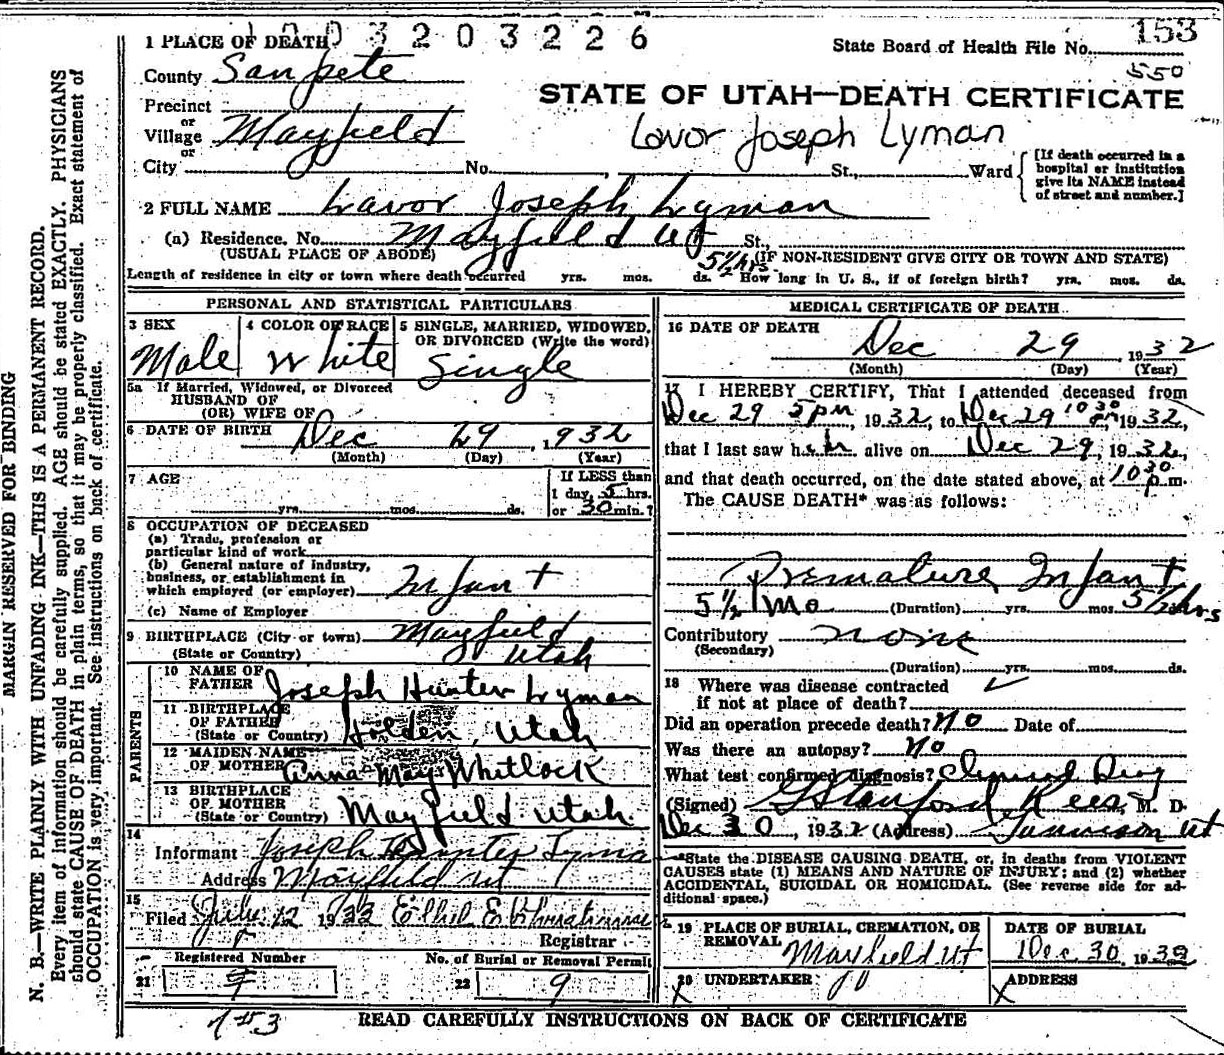 1003203226
State Board of Health File No. 153
550
1 PLACE OF DEATH
County Sanpete
STATE OF UTAH—DEATH CERTIFICATE
Precinct
or
Village Mayfield
Lavor Joseph Lyman
or
City No. St., Ward
[If death occurred in a hospital or institution give its NAME instead of street and number.]
2 FULL NAME Lavor Joseph Lyman
(a) Residence. No. Mayfield Ut St.,
(USUAL PLACE OF ABODE) (IF NON-RESIDENT GIVE CITY OR TOWN AND STATE)
5½ hrs
Length of residence in city or town where death occurred yrs. mos. ds. How long in U. S., if of foreign birth? yrs. mos. ds.
PERSONAL AND STATISTICAL PARTICULARS
3 SEX
Male
4 COLOR OR RACE
White
5 SINGLE, MARRIED, WIDOWED, OR DIVORCED (Write the word)
Single
5a If Married, Widowed, or Divorced
HUSBAND OF
(OR) WIFE OF
6 DATE OF BIRTH Dec 29, 1932
(Month) (Day) (Year)
7 AGE
yrs. mos. ds.
If LESS than
1 day, 5 hrs.
or 30 min.?
8 OCCUPATION OF DECEASED
(a) Trade, profession or
particular kind of work
(b) General nature of industry,
business, or establishment in
which employed (or employer) Infant
(c) Name of Employer
9 BIRTHPLACE (City or town) Mayfield
(State or Country) Utah
PARENTS
10 NAME OF
FATHER Joseph Hunter Lyman
11 BIRTHPLACE
OF FATHER
(State or Country) Holden, Utah
12 MAIDEN NAME
OF MOTHER Anna May Whitlock
13 BIRTHPLACE
OF MOTHER
(State or Country) Mayfield Utah
14
Informant Joseph Hunter Lyma
Address Mayfield Ut
15
Filed July 12 1933
Registrar
Registered Number
21 9
No. of Burial or Removal Permit
22 9
MEDICAL CERTIFICATE OF DEATH
16 DATE OF DEATH
Dec 29, 1932
(Month) (Day) (Year)
17 I HEREBY CERTIFY, That I attended deceased from
Dec 29 5 pm, 1932, to Dec 29 10 30 pm, 1932,
that I last saw h alive on Dec 29, 1932,
and that death occurred, on the date stated above, at 10 30 p.m.
The CAUSE DEATH* was as follows:
Premature Infant
5½ Mo (Duration) yrs. mos. 5½ hrs
Contributory none
(Secondary)
(Duration) yrs. mos. ds.
18 Where was disease contracted
if not at place of death?
Did an operation precede death? No Date of
Was there an autopsy? No
What test confirmed diagnosis?
(Signed) G Stanford Rees, M. D.
Dec 30, 1932 (Address) Gunnison Ut
*State the DISEASE CAUSING DEATH, or, in deaths from VIOLENT
CAUSES state (1) MEANS AND NATURE OF INJURY; and (2) whether
ACCIDENTAL, SUICIDAL OR HOMICIDAL. (See reverse side for additional space.)
19 PLACE OF BURIAL, CREMATION, OR
REMOVAL Mayfield Ut
DATE OF BURIAL
Dec 30, 1932
20 UNDERTAKER
ADDRESS
READ CAREFULLY INSTRUCTIONS ON BACK OF CERTIFICATE
MARGIN RESERVED FOR BINDING
N. B.—WRITE PLAINLY WITH UNFADING INK—THIS IS A PERMANENT RECORD.
Every item of information should be carefully supplied. AGE should be stated EXACTLY. PHYSICIANS
should state CAUSE OF DEATH in plain terms, so that it may be properly classified. Exact statement of
OCCUPATION is very important. See instructions on back of certificate.